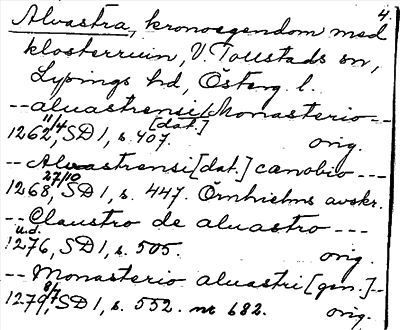 4.
Alvastra, kronoegendom med
klosterruin, V. Tollstads sn,
Lysings hd, Österg. l.
--alvastrensi [dat.] Monasterio--
1262 11/4, SD 1, s. 407. orig.
--Alvastrensi [dat.] cænobio---
1268 27/10, SD 1, s. 447. Örnhielms avskr.
--Claustro de alvastro---
1276 u.d., SD 1, s. 505. orig.
--Monasterio alvastri [gen.]--
1279 8/7, SD 1, s. 552. nr 682. orig.